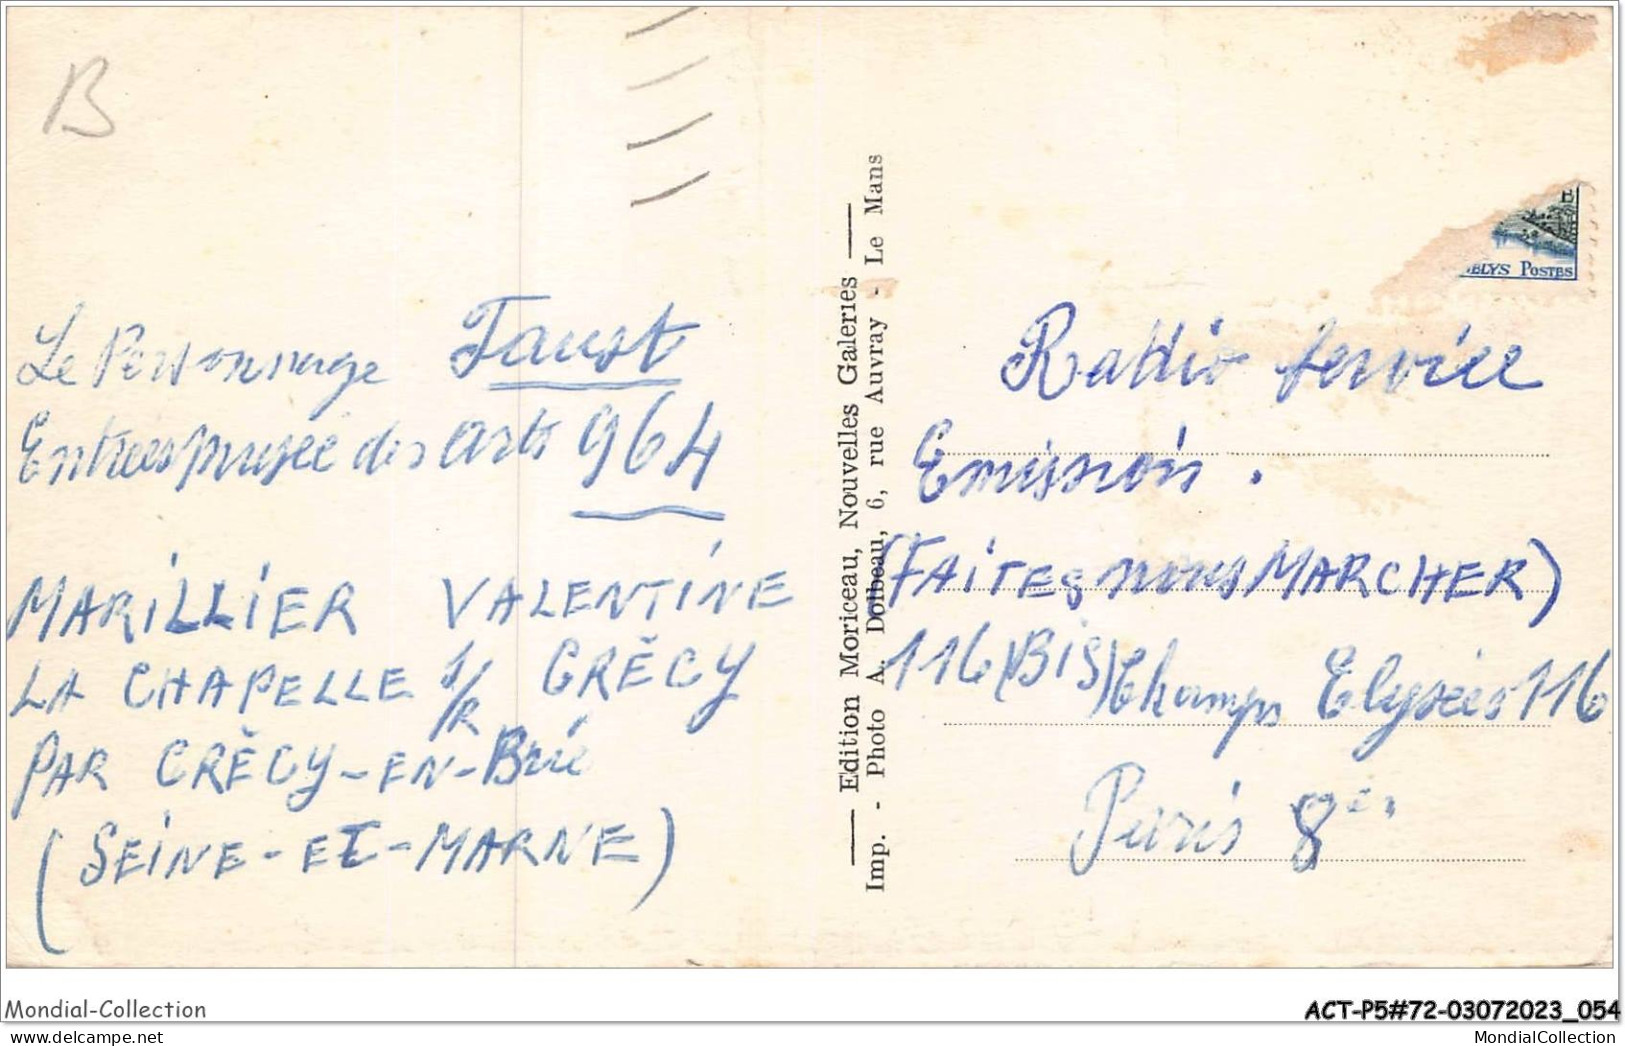 B
Le Personnage Faust
Entrées musée des Arts 964
MARILLIER VALENTINE
LA CHAPELLE S/R CRÈCY
PAR CRÈCY-EN-Brie
(SEINE-ET-MARNE)
Edition Moriceau, Nouvelles Galeries
Imp. - Photo A. Dolbeau, 6, rue Auvray - Le Mans
BLYS POSTES
Radio Service
Emission.
(FAITES nous MARCHER)
116 (BIS) Champs Elysées 116
Paris 8em
Mondial-Collection
ACT-P5#72-03072023_054
www.delcampe.net
MondialCollection